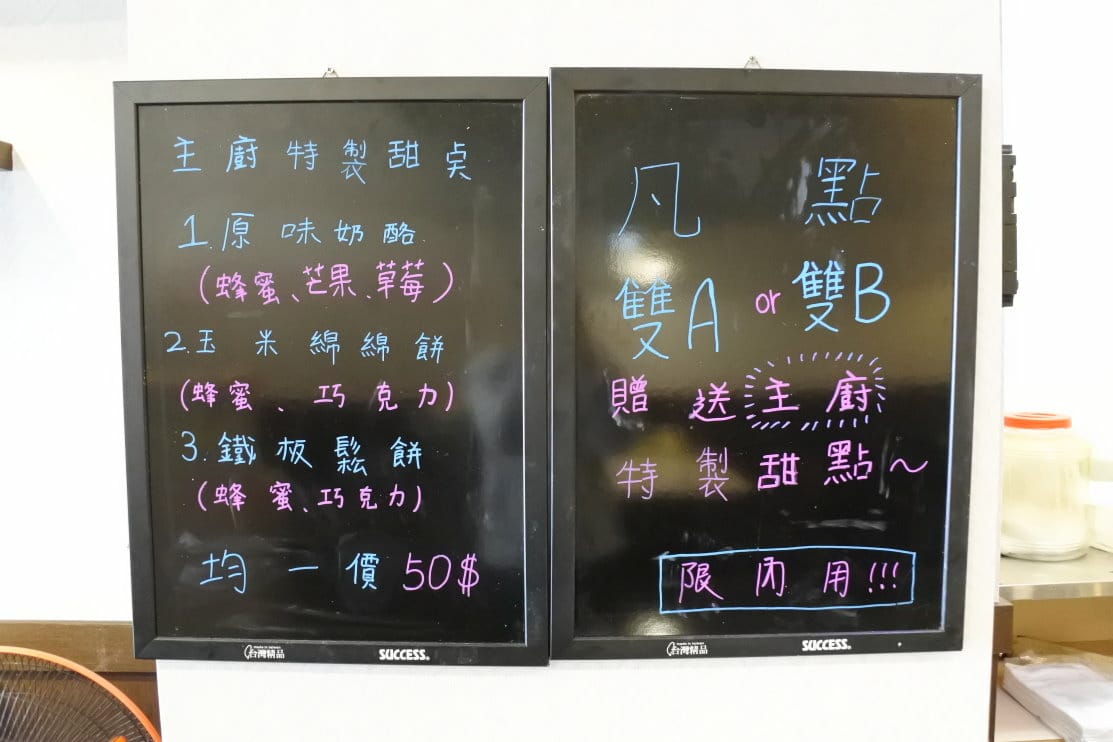 主廚特製甜点
1.原味奶酪
(蜂蜜、芒果、草莓)
2.玉米綿綿餅
(蜂蜜、巧克力)
3.鐵板鬆餅
(蜂蜜、巧克力)
均一價50$
台灣精品
SUCCESS®
凡點
雙A or 雙B
贈送主廚
特製甜點～
限內用!!!
台灣精品
SUCCESS®